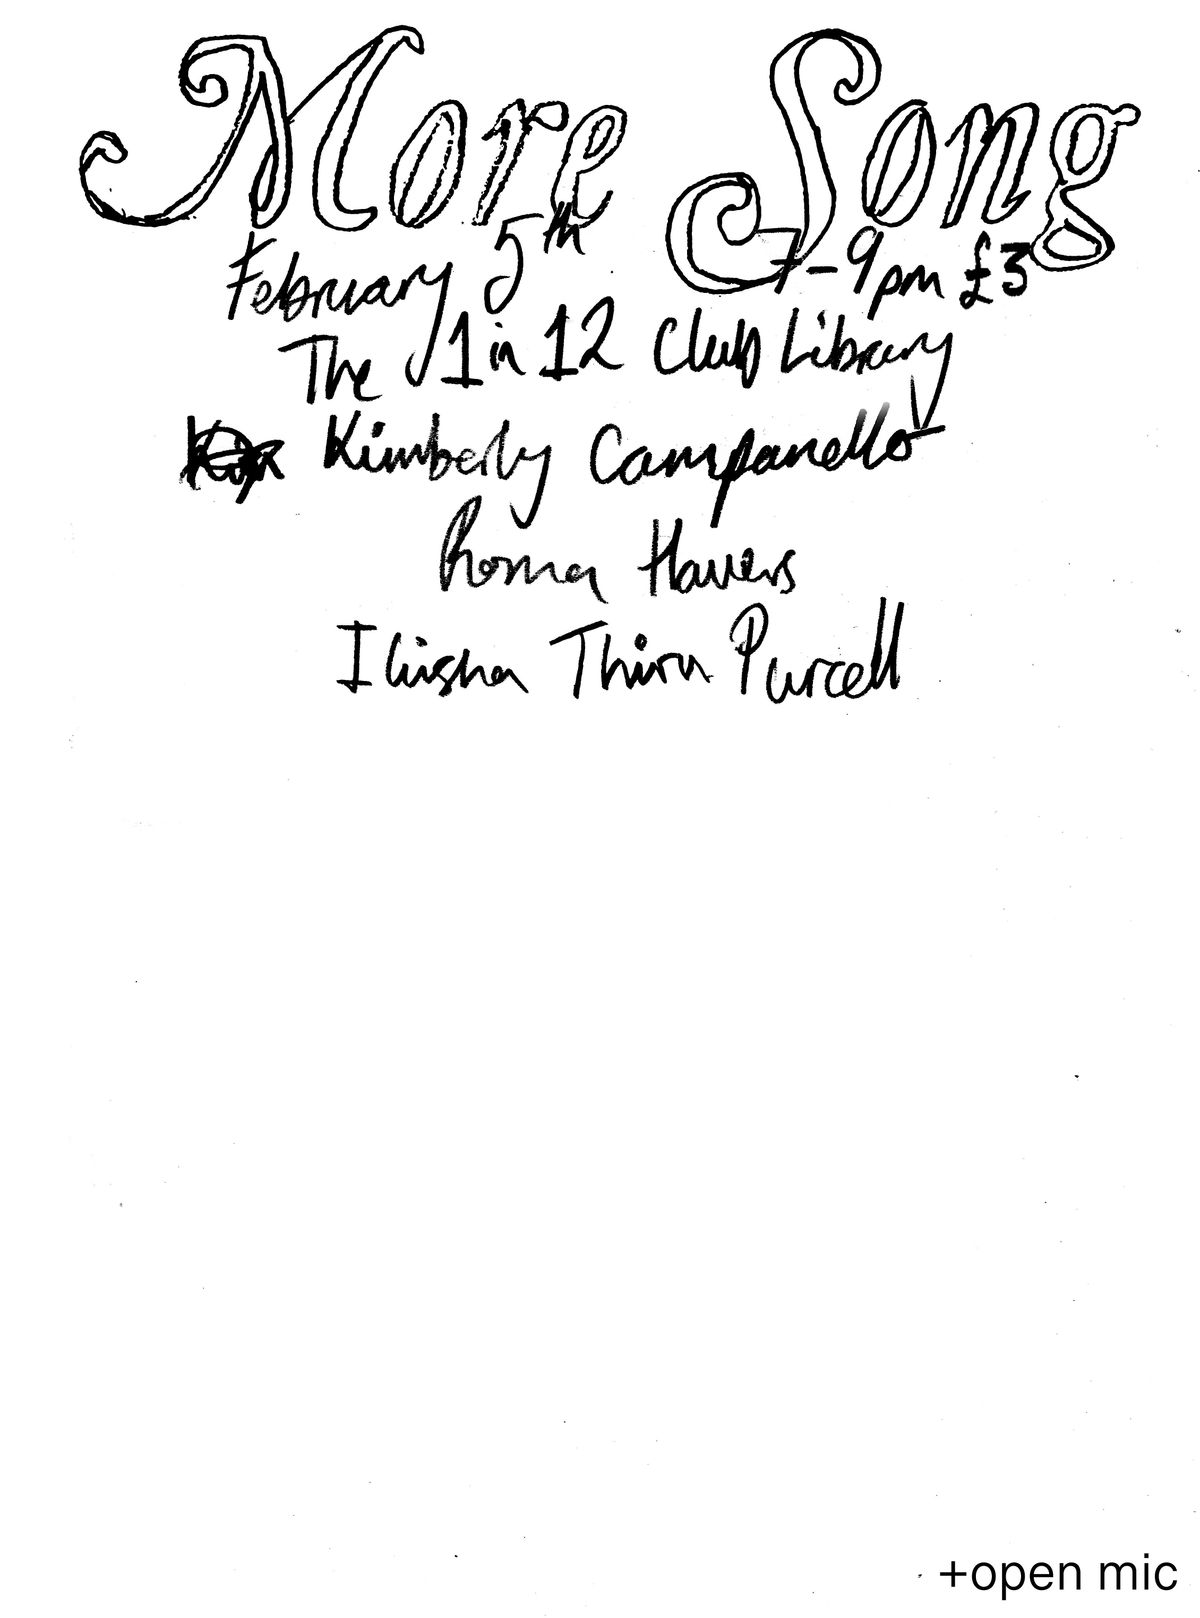 More Song
February 5th 7-9pm £3
The 1 in 12 Club Library
Kimberly Campanello
Roma Havers
Ilisha Thiru Purcell
+open mic